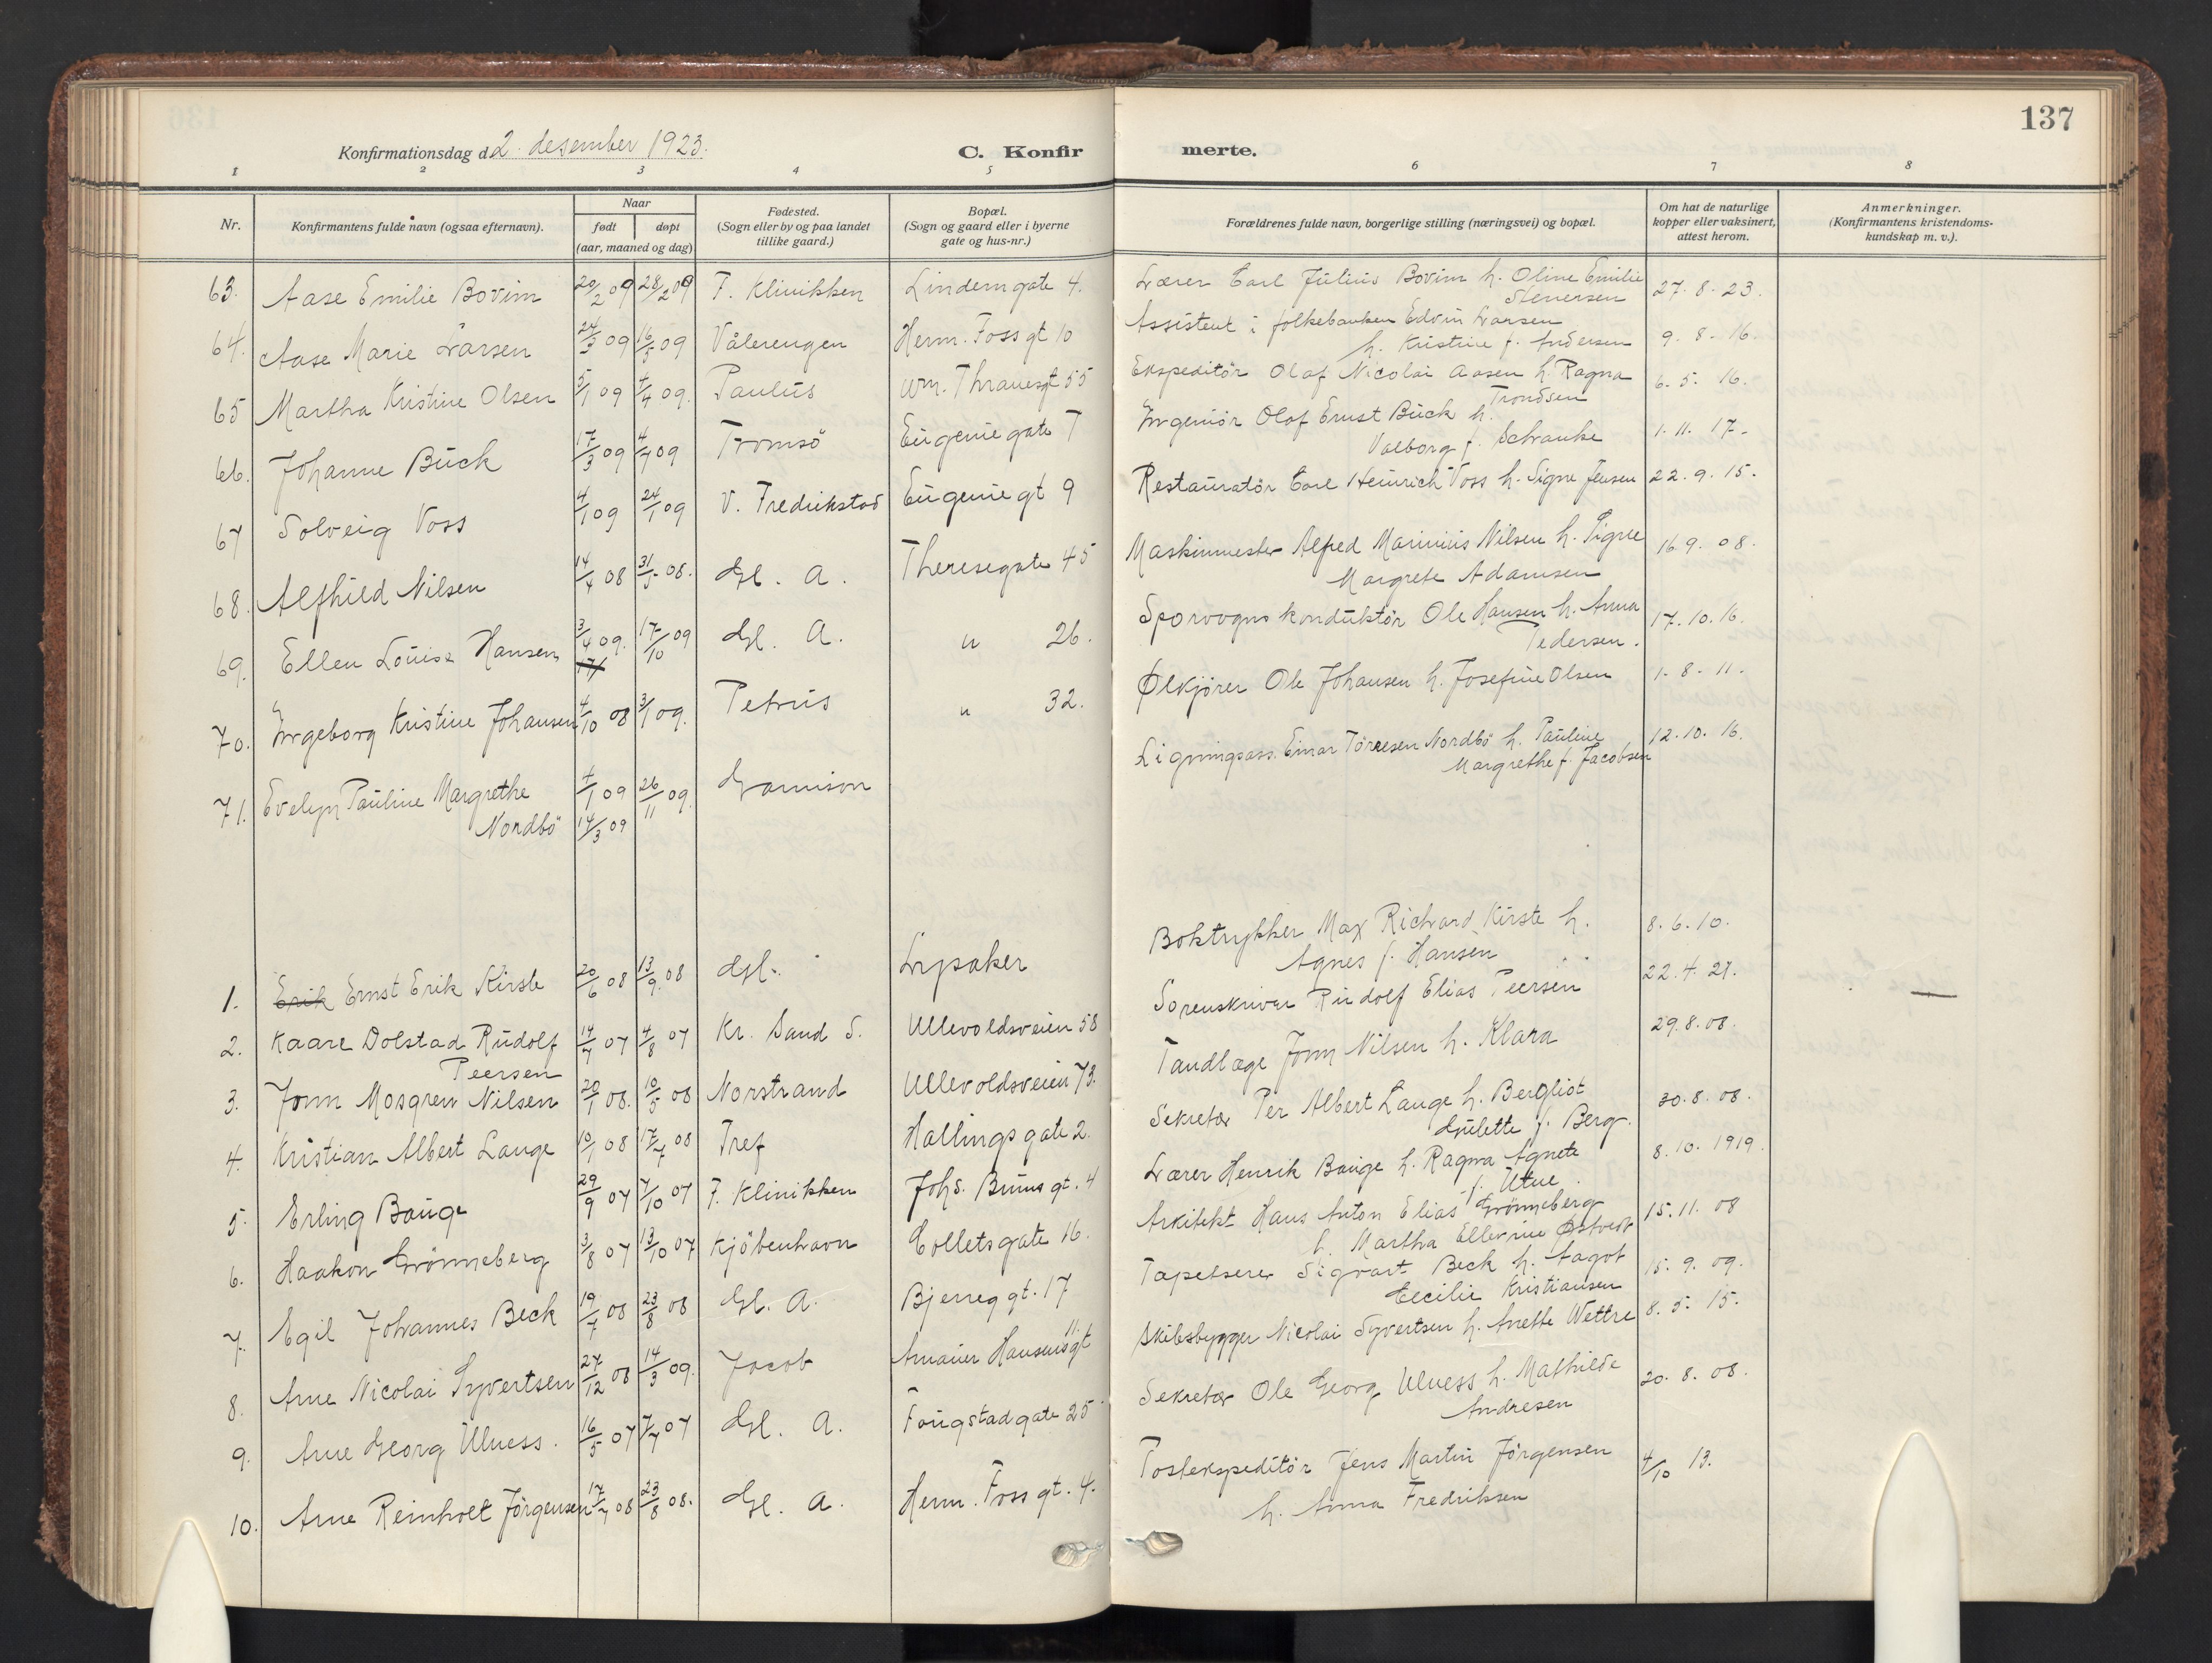 137
Konfirmationsdag d. 2. desember 1923.
C. Konfirmerte.
1 2 3 4 5 6 7 8
Nr.
Konfirmantens fulde navn (ogsaa efternavn).
Naar
født døpt
(aar, maaned og dag)
Fødested.
(Sogn eller by og paa landet
tillike gaard.)
Bopæl.
(Sogn og gaard eller i byerne
gate og hus-nr.)
Forældrenes fulde navn, borgerlige stilling (næringsvei) og bopæl.
Om hat de naturlige
kopper eller vaksinert,
attest herom.
Anmerkninger.
(Konfirmantens kristendoms-
kundskap m. v.).
63. Aase Emilie Bovim 20/2 09 28/2 09 F. Klinikken Lindemgate 4. Lærer Carl Julius Bovim h. Oline Emilie 27. 8. 23.
Stenersen
64. Aase Marie Larsen 24/3 09 16/5 09 Vålerengen Herm. Foss gt 10 Assistent i folkebanken Edvin Larsen
h. Kristine f. Andersen 9. 8. 16.
65 Martha Kristine Olsen 5/1 09 4/4 09. Paulus Wm. Thranesgt 55 Ekspeditör Olaf Nicolai Aasen h. Ragna 6. 5. 16.
Trondsen
66. Johanne Buck 17/3 09 4/7 09 Tromsö Eugenie gate 7 Ingeniör Olaf Ernst Buck h.
Valborg f. Schanke 1. 11. 17.
67 Solveig Voss 4/1 09 24/1 09 V. Fredrikstad Eugenie gt 9 Restauratör Carl Heinrich Voss h. Signe Jensen 22. 9. 15.
68. Alfhild Nilsen 14/4 08 31/5 08. Gl. A. Theresegate 45 Maskinmester Alfred Marinius Nilsen h. Signe 16. 9. 08.
Margrete Adamsen
69. Ellen Louise Hansen 3/4 09. 17/10 09 Gl. A. " 26. Sporvognskonduktör Ole Hansen h. Anna 17. 10. 16.
Pedersen.
70. Ingeborg Kristine Johansen 4/10 08 3/1 09. Petrus " 32. Ølkjörer Ole Johansen h. Josefine Olsen 1. 8. 11.
71. Evelyn Pauline Margrethe 4/1 09 26/11 09. Garnison Ligningsass. Einar Törresen Nordbö h. Pauline 12. 10. 16.
Nordbö 14/3 09 Margrethe f. Jacobsen
1. Erik Ernst Erik Kirste 20/6 08 13/9 08 Gl. Lysaker Boktrykker Max Richard Kirste h. 8. 6. 10.
Agnes f. Hansen
2. Kaare Dolstad Rudolf 14/7 07 4/8 07 Kr. Sand S. Ullevoldsveien 58 Sorenskriver Rudolf Elias Peersen 22. 4. 21.
Peersen
3. Jonn Mosgren Nilsen 20/1 08. 10/5 08 Norstrand Ullevoldsveien 73. Tandlæge Jonn Nilsen h. Klara 29. 8. 08.
4. Kristian Albert Lange 10/1 08 17/4 08 Tref Hallings gate 2. Sekretær Per Albert Lange h. Bergliot 30. 8. 08.
Gulette f. Berg.
5. Erling Bauge 29/9 07 7/10 07 F. Klinikken Johs. Bruns gt. 4 Lærer Henrik Bauge h. Ragna Agnete 8. 10. 1919.
f. Utne.
6. Haakon Grönneberg 3/8 07 13/10 07 Kjöbenhavn Collets gate 16. Arkitekt Hans Anton Elias Grönneberg 15. 11. 08
h. Martha Ellevine Østvedt
7. Egil Johannes Beck 19/7 08 23/8 08 Gl. A. Bjerreg gt. 17 Tapetserer Sigvart Beck h. Aagot 15. 9. 09.
Cecilie Kristiansen
8. Arne Nicolai Syvertsen 27/12 08 14/3 09. Jacob Amaier Hansensgt 11. Skibsbygger Nicolai Syvertsen h. Anette Wettre 8. 5. 15.
9. Arne Georg Ulness. 16/5 07 7/7 07 Gl. A. Fougstadgate 25 Sekretær Ole Georg Ulness h. Mathilde 20. 8. 08.
Andresen
10. Arne Reinholt Jörgensen 17/7 08 23/8 08. Gl. A. Herm. Foss gt. 4. Postekspeditör Jens Martin Jörgensen 4/10 13.
h. Anna Fredriksen